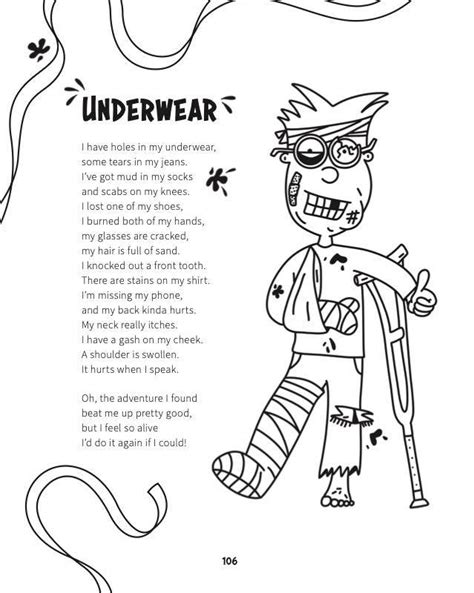 UNDERWEAR
I have holes in my underwear,
some tears in my jeans.
I've got mud in my socks
and scabs on my knees.
I lost one of my shoes,
I burned both of my hands,
my glasses are cracked,
my hair is full of sand.
I knocked out a front tooth.
There are stains on my shirt.
I'm missing my phone,
and my back kinda hurts.
My neck really itches.
I have a gash on my cheek.
A shoulder is swollen.
It hurts when I speak.
Oh, the adventure I found
beat me up pretty good,
but I feel so alive
I'd do it again if I could!
106